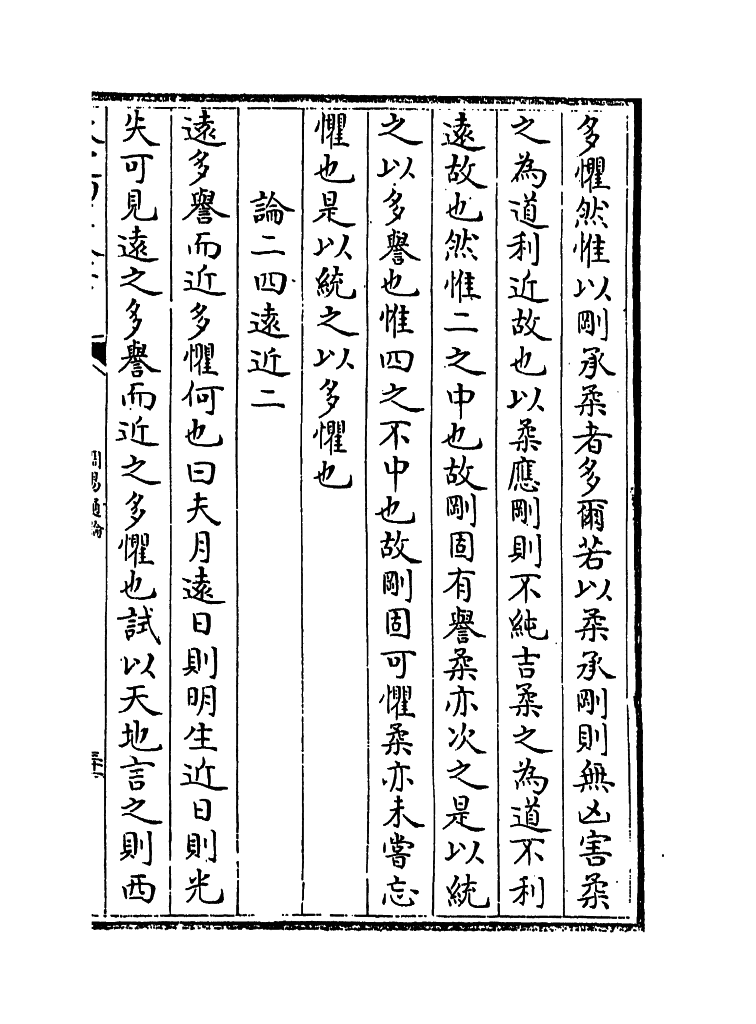 多懼然惟以剛承柔者多爾若以柔承剛則無凶害柔
之為道利近故也以柔應剛則不純吉柔之為道不利
遠故也然惟二之中也故剛固有譽柔亦次之是以統
之以多譽也惟四之不中也故剛固可懼柔亦未嘗忘
懼也是以統之以多懼也
論二四遠近二
遠多譽而近多懼何也曰夫月遠日則明生近日則光
失可見遠之多譽而近之多懼也試以天地言之則西
周易通論